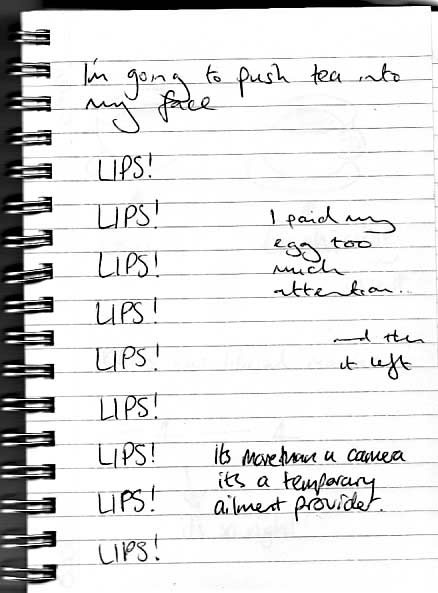 I'm going to push tea into
my face
LIPS!
LIPS!
LIPS!
LIPS!
LIPS!
LIPS!
LIPS!
LIPS!
LIPS!
I paid my
egg too
much
attention...
and then
it left
its more than a camera
its a temporary
ailment provider.